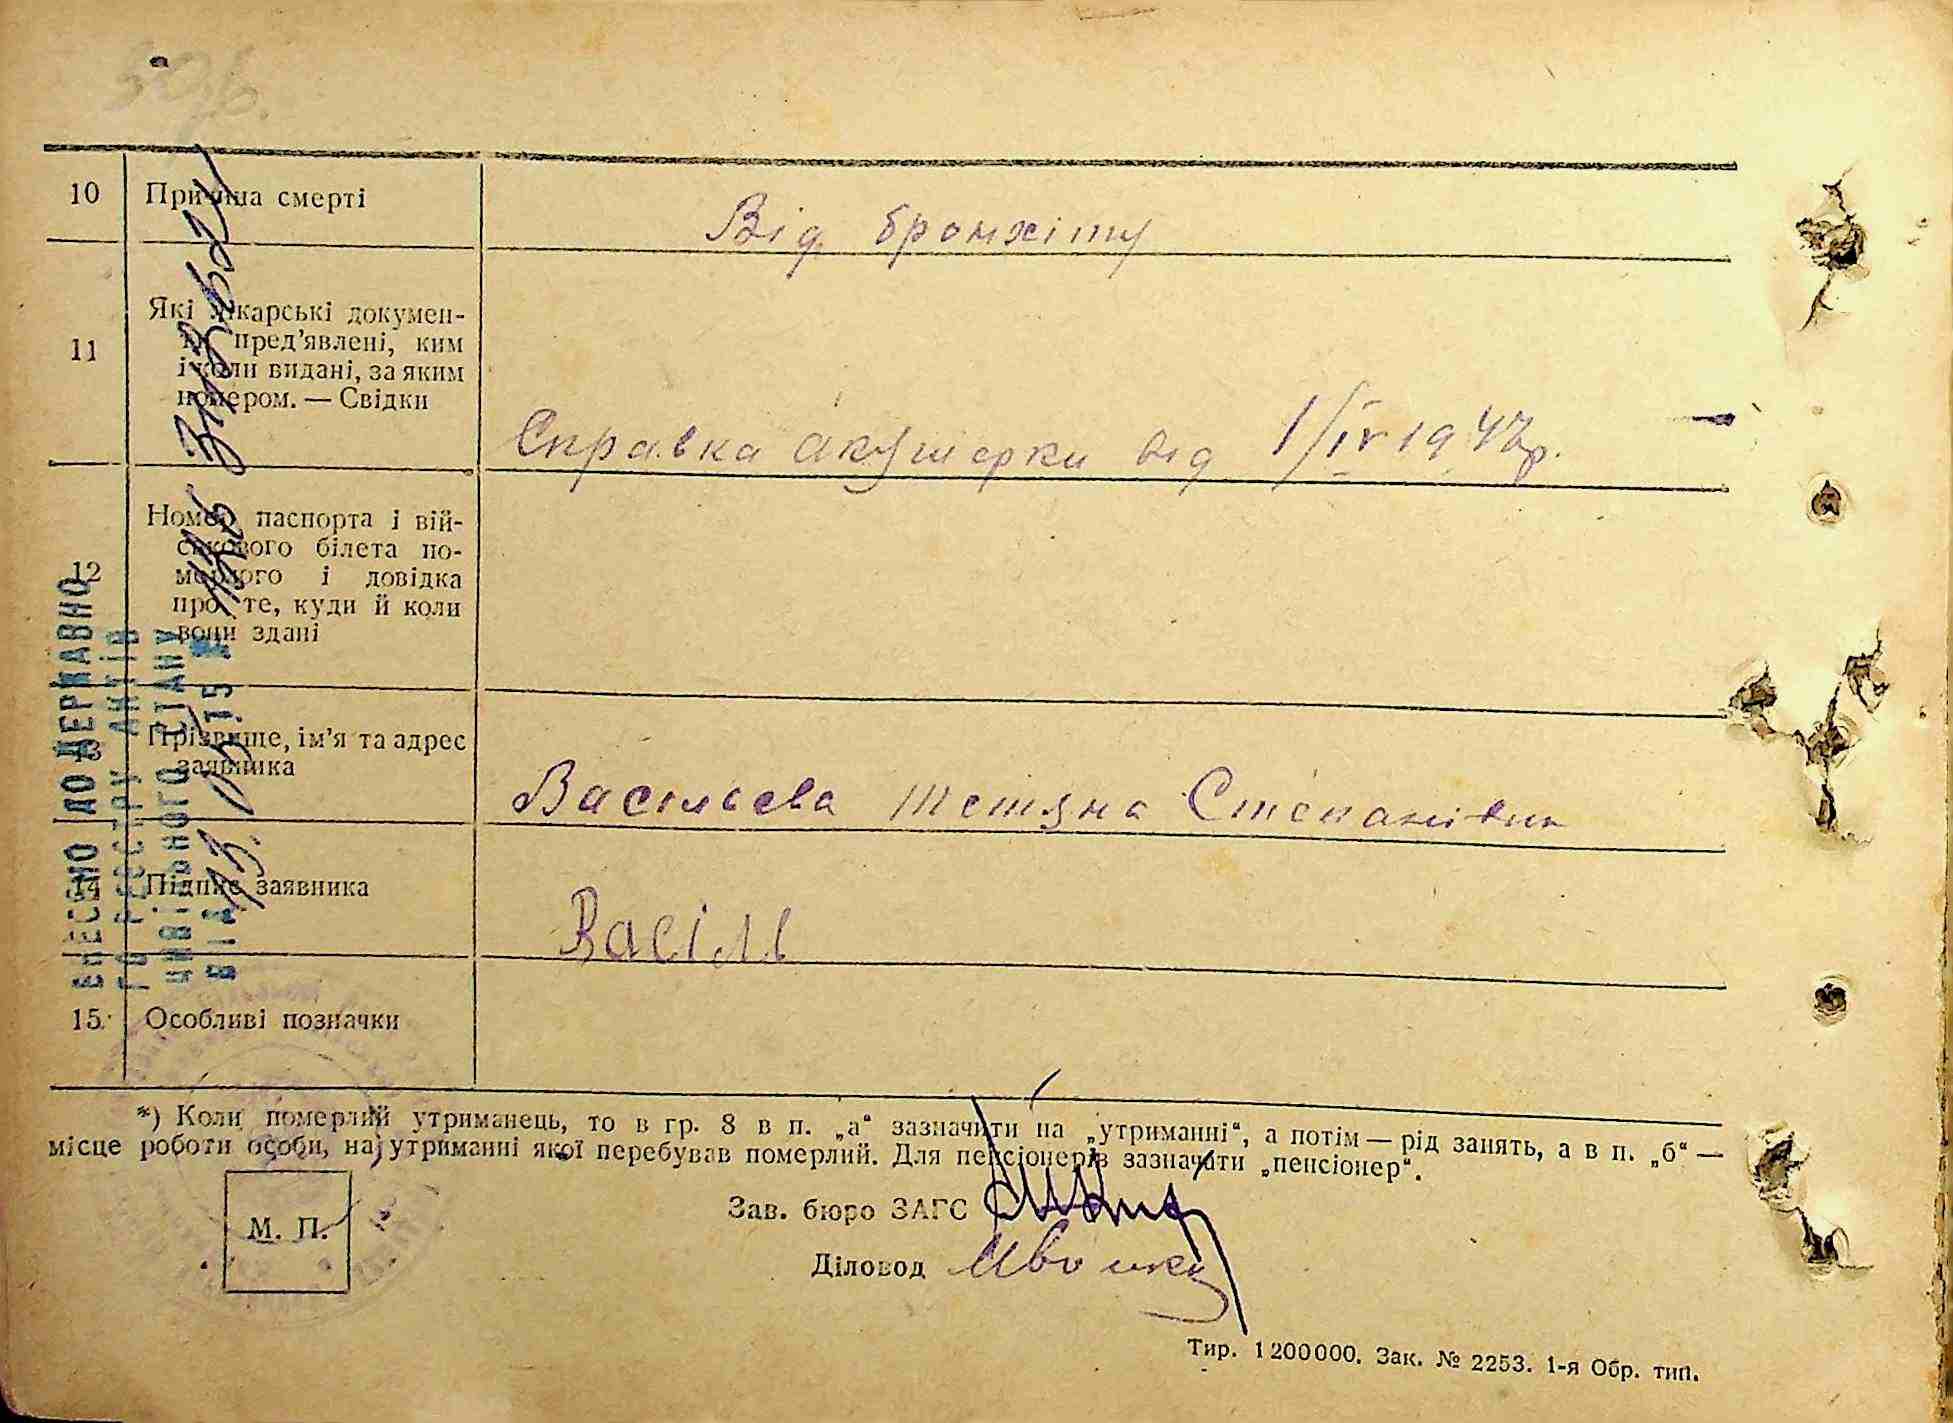 10 Причина смерті
Від бронхіту
11 Які лікарські докумен-
ти пред’явлені, ким
і коли видані, за яким
номером. — Свідки
Справка акушерки від 1/IV 1947р.
12 Номер паспорта і вій-
ськового білета по-
мерлого і довідка
про те, куди й коли
вони здані
13 Прізвище, ім’я та адрес
заявника
Васильєва Тетяна Степанівна
14 Підпис заявника
Васіль
15. Особливі позначки
*) Коли померлий утриманець, то в гр. 8 в п. „а“ зазначити на „утриманні“, а потім — рід занять, а в п. „б“ —
місце роботи особи, на утриманні якої перебував померлий. Для пенсіонерів зазначати „пенсіонер“.
М. П.
Зав. бюро ЗАГС
Діловод
Тир. 1200000. Зак. № 2253. 1-я Обр. тип.
ВНЕСЕНО ДО ДЕРЖАВНО
ГО РЕЄСТРУ АКТІВ
ЦИВІЛЬНОГО СТАНУ
ВІД 13. 15 №